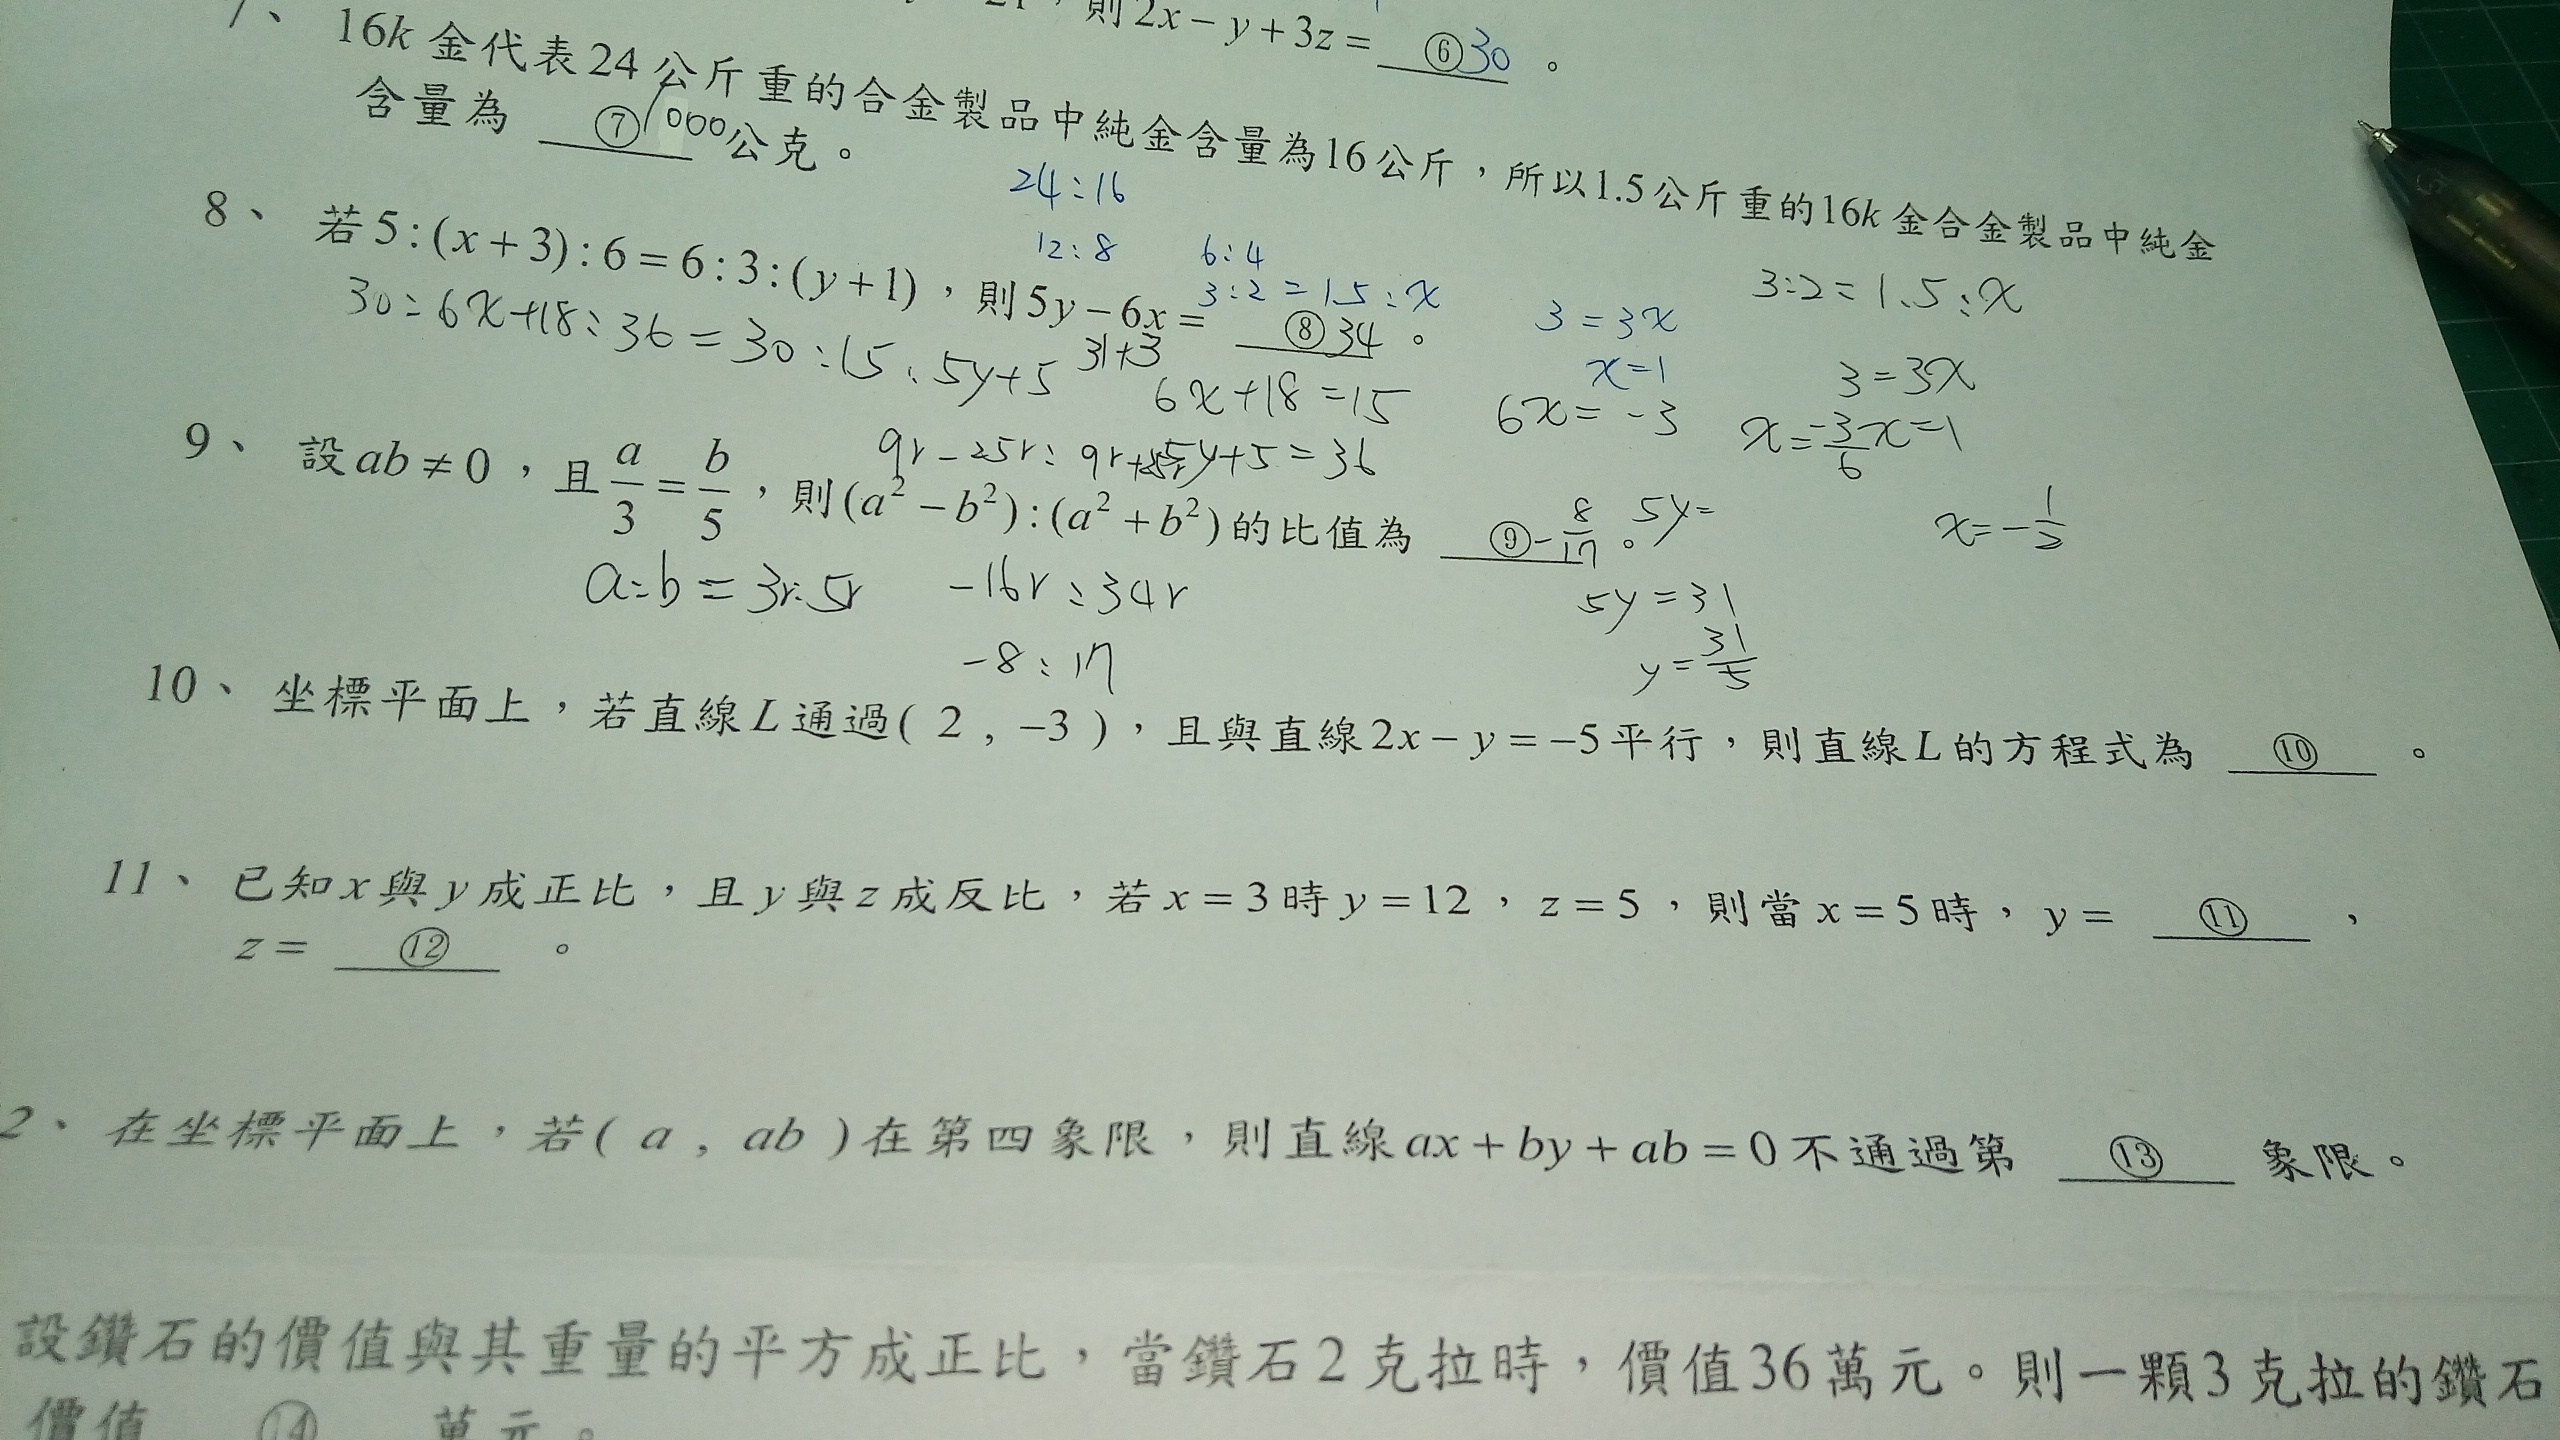 則2x − y + 3z = ⑥30 。
7、 16k 金代表24公斤重的合金製品中純金含量為16公斤，所以1.5公斤重的16k 金合金製品中純金
含量為 ⑦1000公克。
24:16
12:8 6:4
3:2 = 1.5:x
3 = 3x
x=1
3:2 = 1.5:x
3=3x
x=1
8、 若5:(x+3):6=6:3:(y+1)，則5y−6x= ⑧34 。
30:6x+18:36=30:15:5y+5
31+3
6x+18=15
6x=-3
x=-3/6
x=-1/2
5y+5=36
5y=
5y=31
y=31/5
9、 設ab≠0，且a/3=b/5，則(a²−b²):(a²+b²)的比值為 ⑨-8/17 。
9r-25r:9r+25r
a:b=3r:5r -16r:34r
-8:17
10、 坐標平面上，若直線L通過( 2 , −3 )，且與直線2x−y=−5平行，則直線L的方程式為 ⑩ 。
11、 已知x與y成正比，且y與z成反比，若x=3時y=12，z=5，則當x=5時，y= ⑪ ，
z= ⑫ 。
2、 在坐標平面上，若( a , ab )在第四象限，則直線ax+by+ab=0不通過第 ⑬ 象限。
設鑽石的價值與其重量的平方成正比，當鑽石2克拉時，價值36萬元。則一顆3克拉的鑽石
價值 ⑭ 萬元。